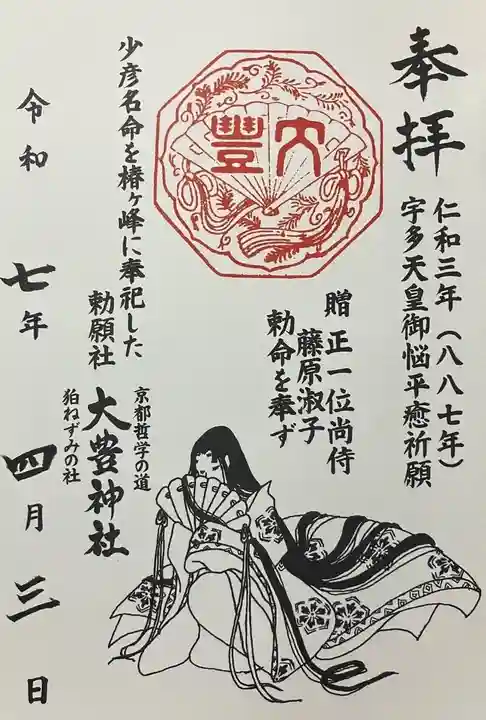 奉拝
仁和三年(八八七年)
宇多天皇御悩平癒祈願
贈 正一位尚侍
藤原淑子
勅命を奉ず
大豐
少彦名命を椿ヶ峰に奉祀した
勅願社
京都哲学の道
大豊神社
狛ねずみの社
令和 七年 四月 三日